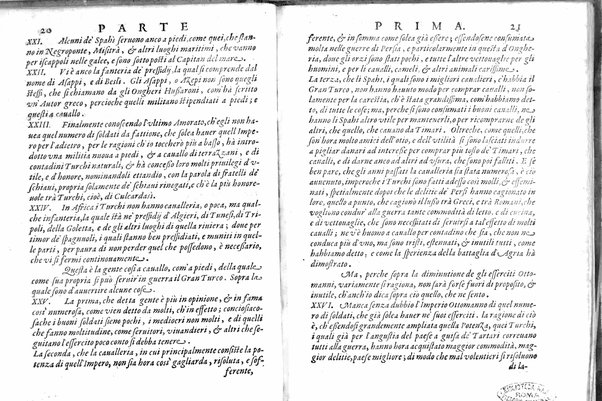 20 PARTE
XXI. Alcuni de' Spahì seruono anco a piedi, come quei, che stan-
no in Negroponte, Misitrà, & altri luoghi maritimi, che vanno
per iscappoli nelle galee, e sono sotto posti al Capitan del mare.
XXII. Vi è anco la fanteria de' pressidij, la qual si comprende dal
nome di Asappi, e di Besli. Gli Asappi, o Azepi non sono quegli
stessi, che si chiamano da gli Ongheri Hussaroni, com'hà scritto
vn' Autor greco, percioche quelli militano stipendiati a piedi; e
questi a cauallo.
XXIII. Finalmente conoscendo l'vltimo Amorato, ch'egli non ha-
uea quel numero di soldati da fattione, che solea hauer quell'Impe-
ro per l'adietro, per le ragioni ch'io toccerò più a basso, hà intro-
dotto vna militia nuoua a piedi, & a cauallo di terrazzani, e di
contadini Turchi naturali, & hà concesso loro molti priuilegi d'v-
tile, e d'honore, nominandoli ettandio, con la parola di fratelli de'
schiaui, propria solamente de' schiaui rinegati, e ch'è la più honore-
uole trà Turchi, cioè, di Culcardasi.
XXIV. In Affrica i Turchi non hanno caualleria, o poca, ma qual-
che infanteria, la quale ità ne' pressidij d'Algieri, di Tunesi, di Tri-
poli, della Goletta, e de gli altri luoghi di quella riuiera; doue per
timor de' spagnuoli, i quali stanno ben pressidiati, e muniti in quel-
le parti, per paura di non perder quel che possedono, è necessario,
che vi si fermi continouamente.
Questa è la gente così a cauallo, com'a piedi, della quale
come sua propria si può seruir in guerra il Gran Turco. Sopra la
quale sono d'auuertire alcune cose.
XXV. La prima, che detta gente è più in opinione, & in fama
così numerosa, come vien detto da molti, ch'in effetto; conciosiaco-
sache i buoni soldati siено pochi, i mediocri non molti, e di quelli
che fanno moltitudine, come seruitori, viuandieri, & altri che se-
guitano l'essercito poco conto si debba tenere.
La seconda, che la caualleria, in cui principalmente consiste la po-
tenza di quell'Impero, non sia hora così gagliarda, risoluta, e sof-
ferente,
PRIMA. 21
ferente, & in somma come solea già essere; essendosene consumata
molta nelle guerre di Persia, e particolarmente in questa d'Onghe-
ria, doue gli orzi sono stati pochi, e tutte l'altre vettouaglie per gli
huomini, e per li caualli, cameli, & altri animali carissime.
La terza, che li Spahì, i quali sono i migliori caualieri, c'habbia il
Gran Turco, non hanno hauuto modo per comprar caualli, non so-
lamente per la carestia, ch'è stata grandissima, com'habbiamo det-
to, di tutte le cose; ma, perche si sono consumati di buoni caualli, nè
hanno li Spahì altro vtile per mantenerli, o per ricomprarne de gli
altri, che quello, che cauano da Timari. Oltreche, come quelli, che
son hora molto amici dell'otio, e dell'vtili si sono lasciati indurre
a pigliar danari ad interesse per comprar più tosto de' Timari, che
caualli, e di darne anco ad altri ad vsura, che sono poi falliti. E se
ben pare, che gli anni passati la caualleria sia stata numerosa, è ciò
auuenuto, imperoche i Turchi sono fatti adesso così molli, & effemi-
nati, spetialmente dopo che le delitie de' Persi hanno cagionato in
loro, quello a punto, che cagionò il lusso trà Greci, e trà Romani, che
vogliono condur' alla guerra tante commodità di letto, e di cucina,
e di vettouaglie, che sono necessitati di seruirsi a tal effetto di molti
caualli; nè vi è hora a cauallo pur contadino che sia, che non ne
conduca più di vno, ma sono tristi, estenuati, & inutili tutti, come
habbiamo detto, e come la sperienza della battaglia d'Agria hà
dimostrato.
Ma, perche sopra la diminutione de gli esserciti Otto-
manni, variamente si ragiona, non sarà forse fuori di proposito, &
inutile, ch'anch'io dica sopra ciò quello, che ne sento.
XXVI. Manca senza dubbio l'Impero Ottomanno di quel nume-
ro di soldati, che già solea hauer ne' suoi esserciti. la ragion di ciò
è, ch'essendosi grandemente ampliata quella Potenza, quei Turchi,
i quali già per l'angustia del paese a guisa de' Tartari correuano
tutti alla guerra, hanno hora acquistato maggior commodità, mag-
gior delitie, paese migliore; di modo che mal volentieri si risoluono
di la-
ROMA